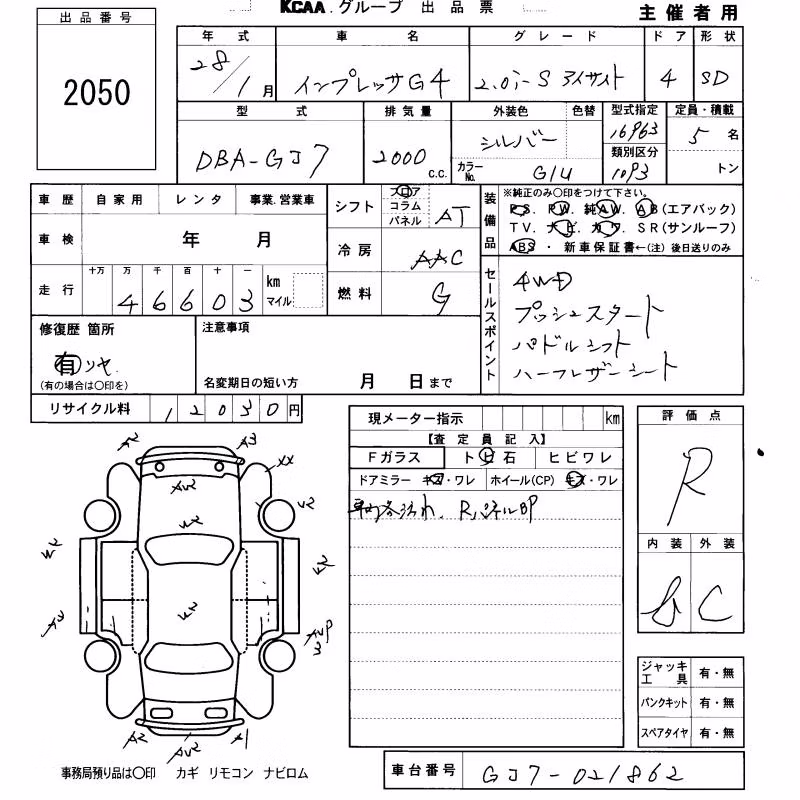 出品番号
2050
KCAA.グループ 出品票
主催者用
年式 車名 グレード ドア 形状
28/1月 インプレッサG4 2.0i-S アイサイト 4 SD
型式 排気量 外装色 色替 型式指定 定員・積載
DBA-GJ7 2000 c.c. シルバー 16963 5名
カラーNo. G1U 類別区分 1093 トン
車歴 自家用 レンタ 事業.営業車
車検 年 月
十万 万 千 百 十 一
走行 46603 km マイル
シフト フロア コラム パネル AT
冷房 AAC
燃料 G
装備品
※純正のみ〇印をつけて下さい。
PS. PW. 純AW. AB(エアバック)
TV. ナビ. カワ. SR(サンルーフ)
ABS ・ 新車保証書←(注)後日送りのみ
セールスポイント
4WD
プッシュスタート
パドルシフト
ハーフレザーシート
修復歴 箇所
有 ソヤ.
(有の場合は〇印を)
注意事項
名変期日の短い方 月 日まで
リサイクル料 12030円
現メーター指示 km
【査定員記入】
Fガラス トビ石 ヒビワレ
ドアミラー キズ・ワレ ホイール(CP) キズ・ワレ
車内各汚れ. Rパネル凹
評価点
R
内装 外装
C
A2 A3
XX
AU2
U2 U2
A2
A2 AU2 A1
ジャッキ工具 有・無
パンクキット 有・無
スペアタイヤ 有・無
事務局預り品は〇印 カギ リモコン ナビロム
車台番号 GJ7-021862